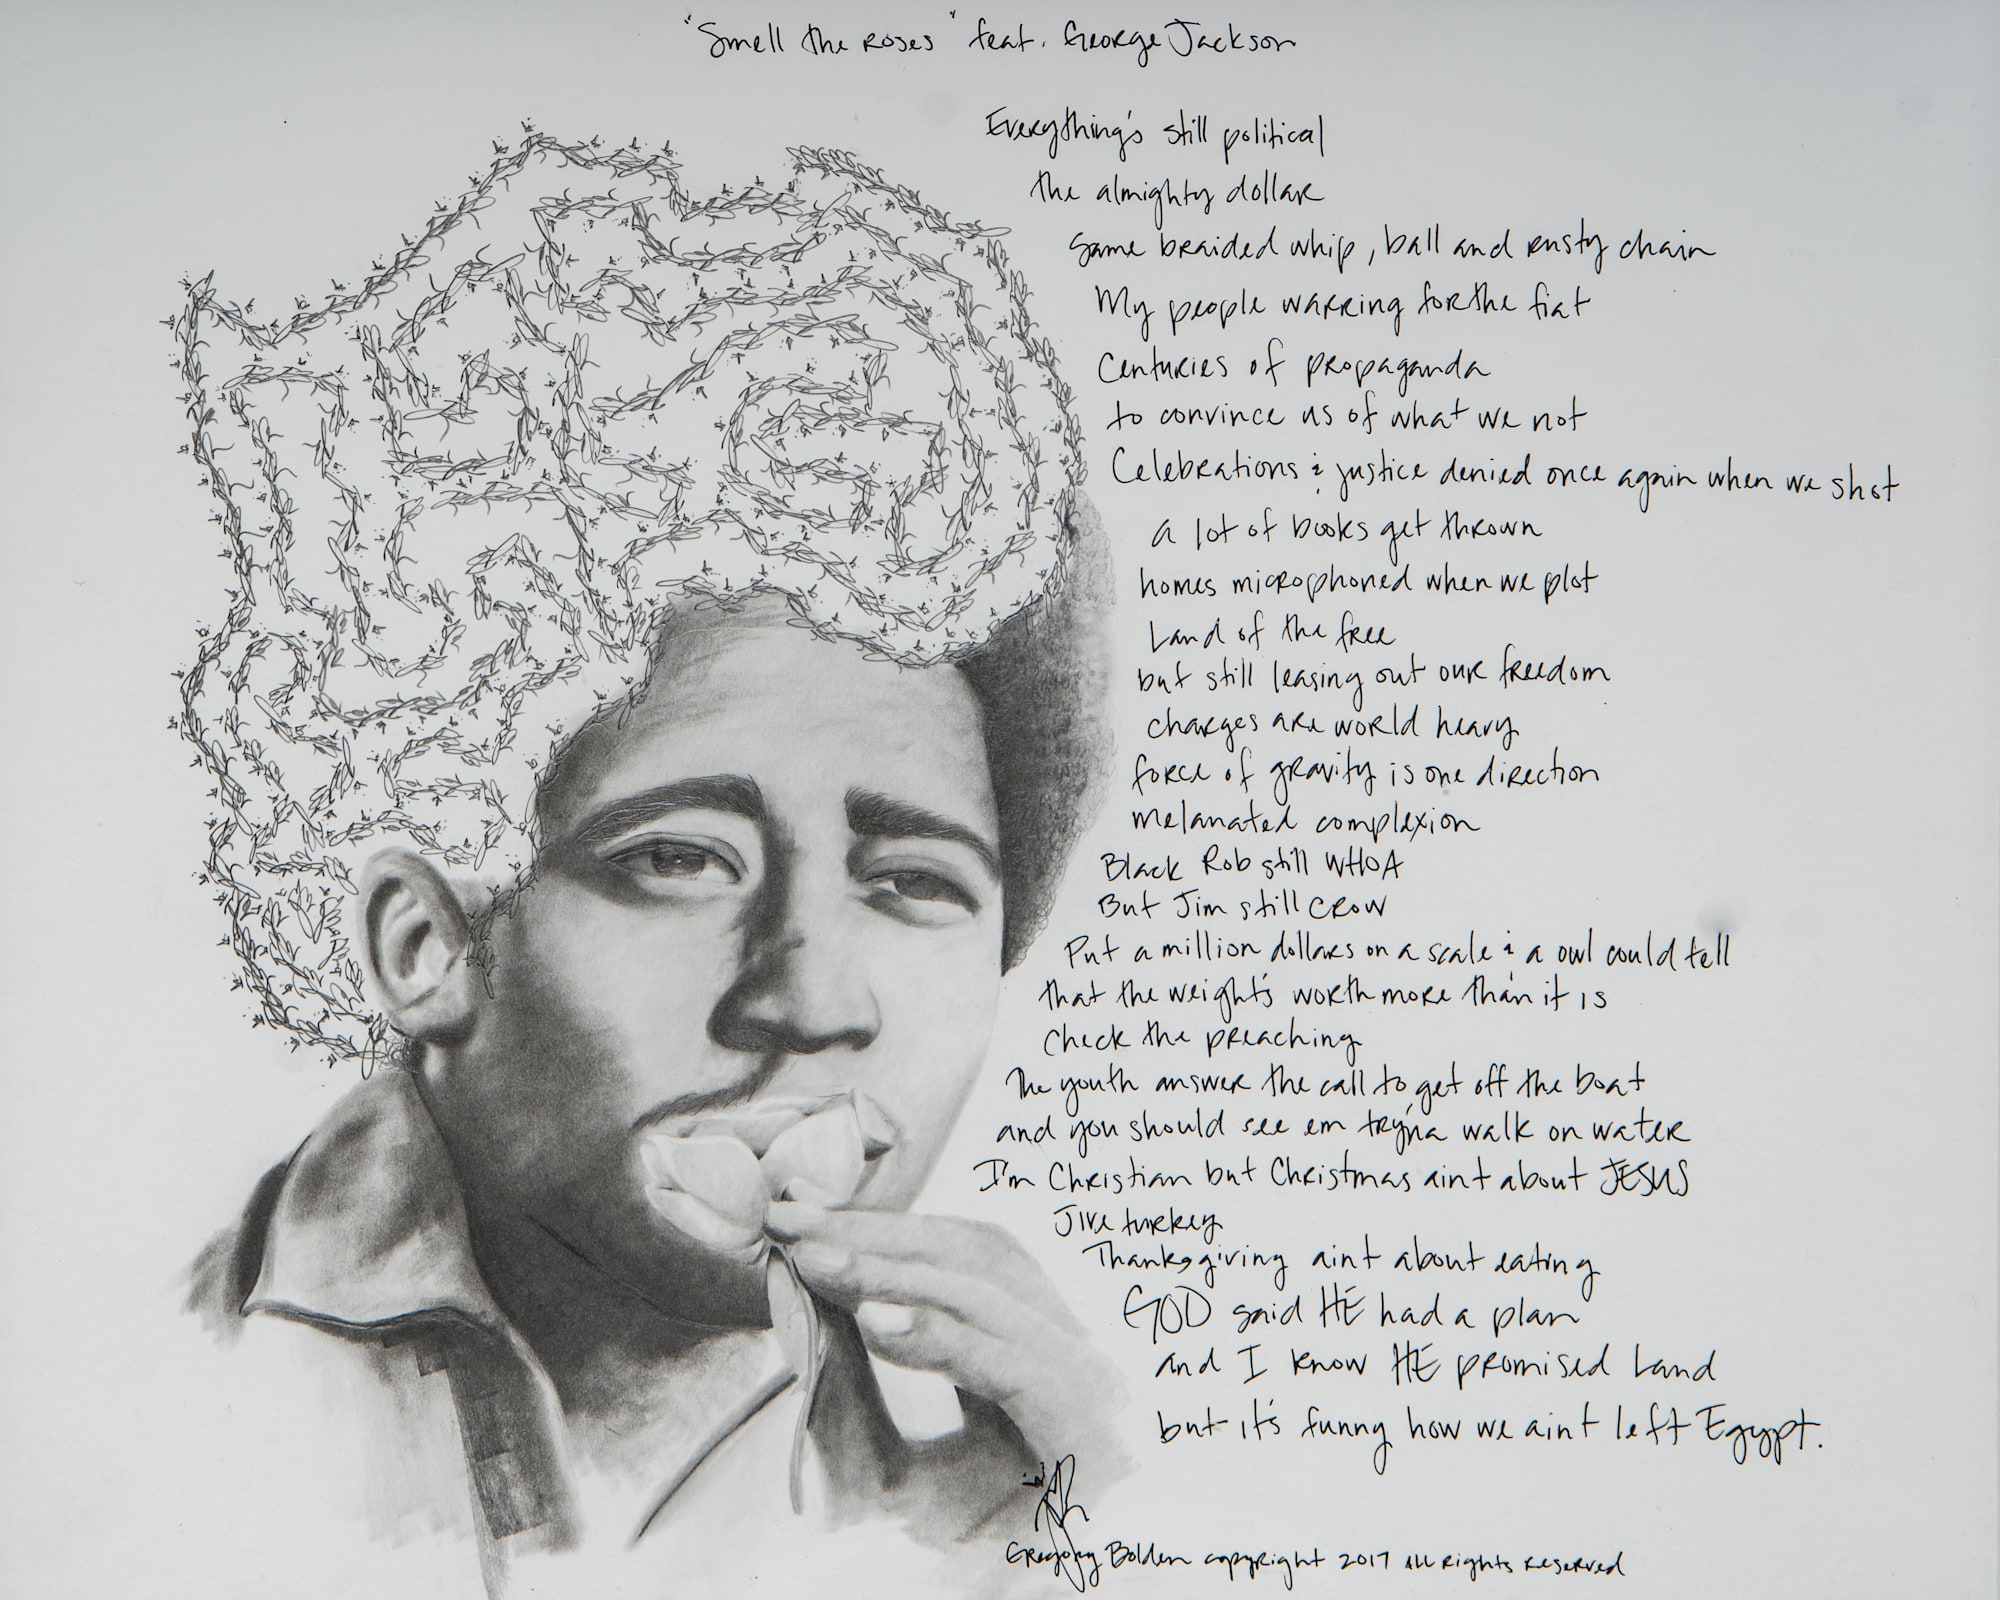 "Smell the Roses" feat. George Jackson
Everything's still political
the almighty dollar
same braided whip, ball and rusty chain
My people warring for the fiat
Centuries of propaganda
to convince us of what we not
Celebrations & justice denied once again when we shot
a lot of books get thrown
homes microphoned when we plot
Land of the free
but still leasing out our freedom
charges are world heavy
force of gravity is one direction
melanated complexion
Black Rob still WHOA
But Jim still CROW
Put a million dollars on a scale & a owl could tell
that the weight's worth more than it is
Check the preaching
The youth answer the call to get off the boat
and you should see em tryna walk on water
I'm Christian but Christmas aint about JESUS
Jive turkey
Thanksgiving aint about eating
GOD said HE had a plan
and I know HE promised Land
but it's funny how we aint left Egypt.
Gregory Bolden copyright 2017 All Rights Reserved